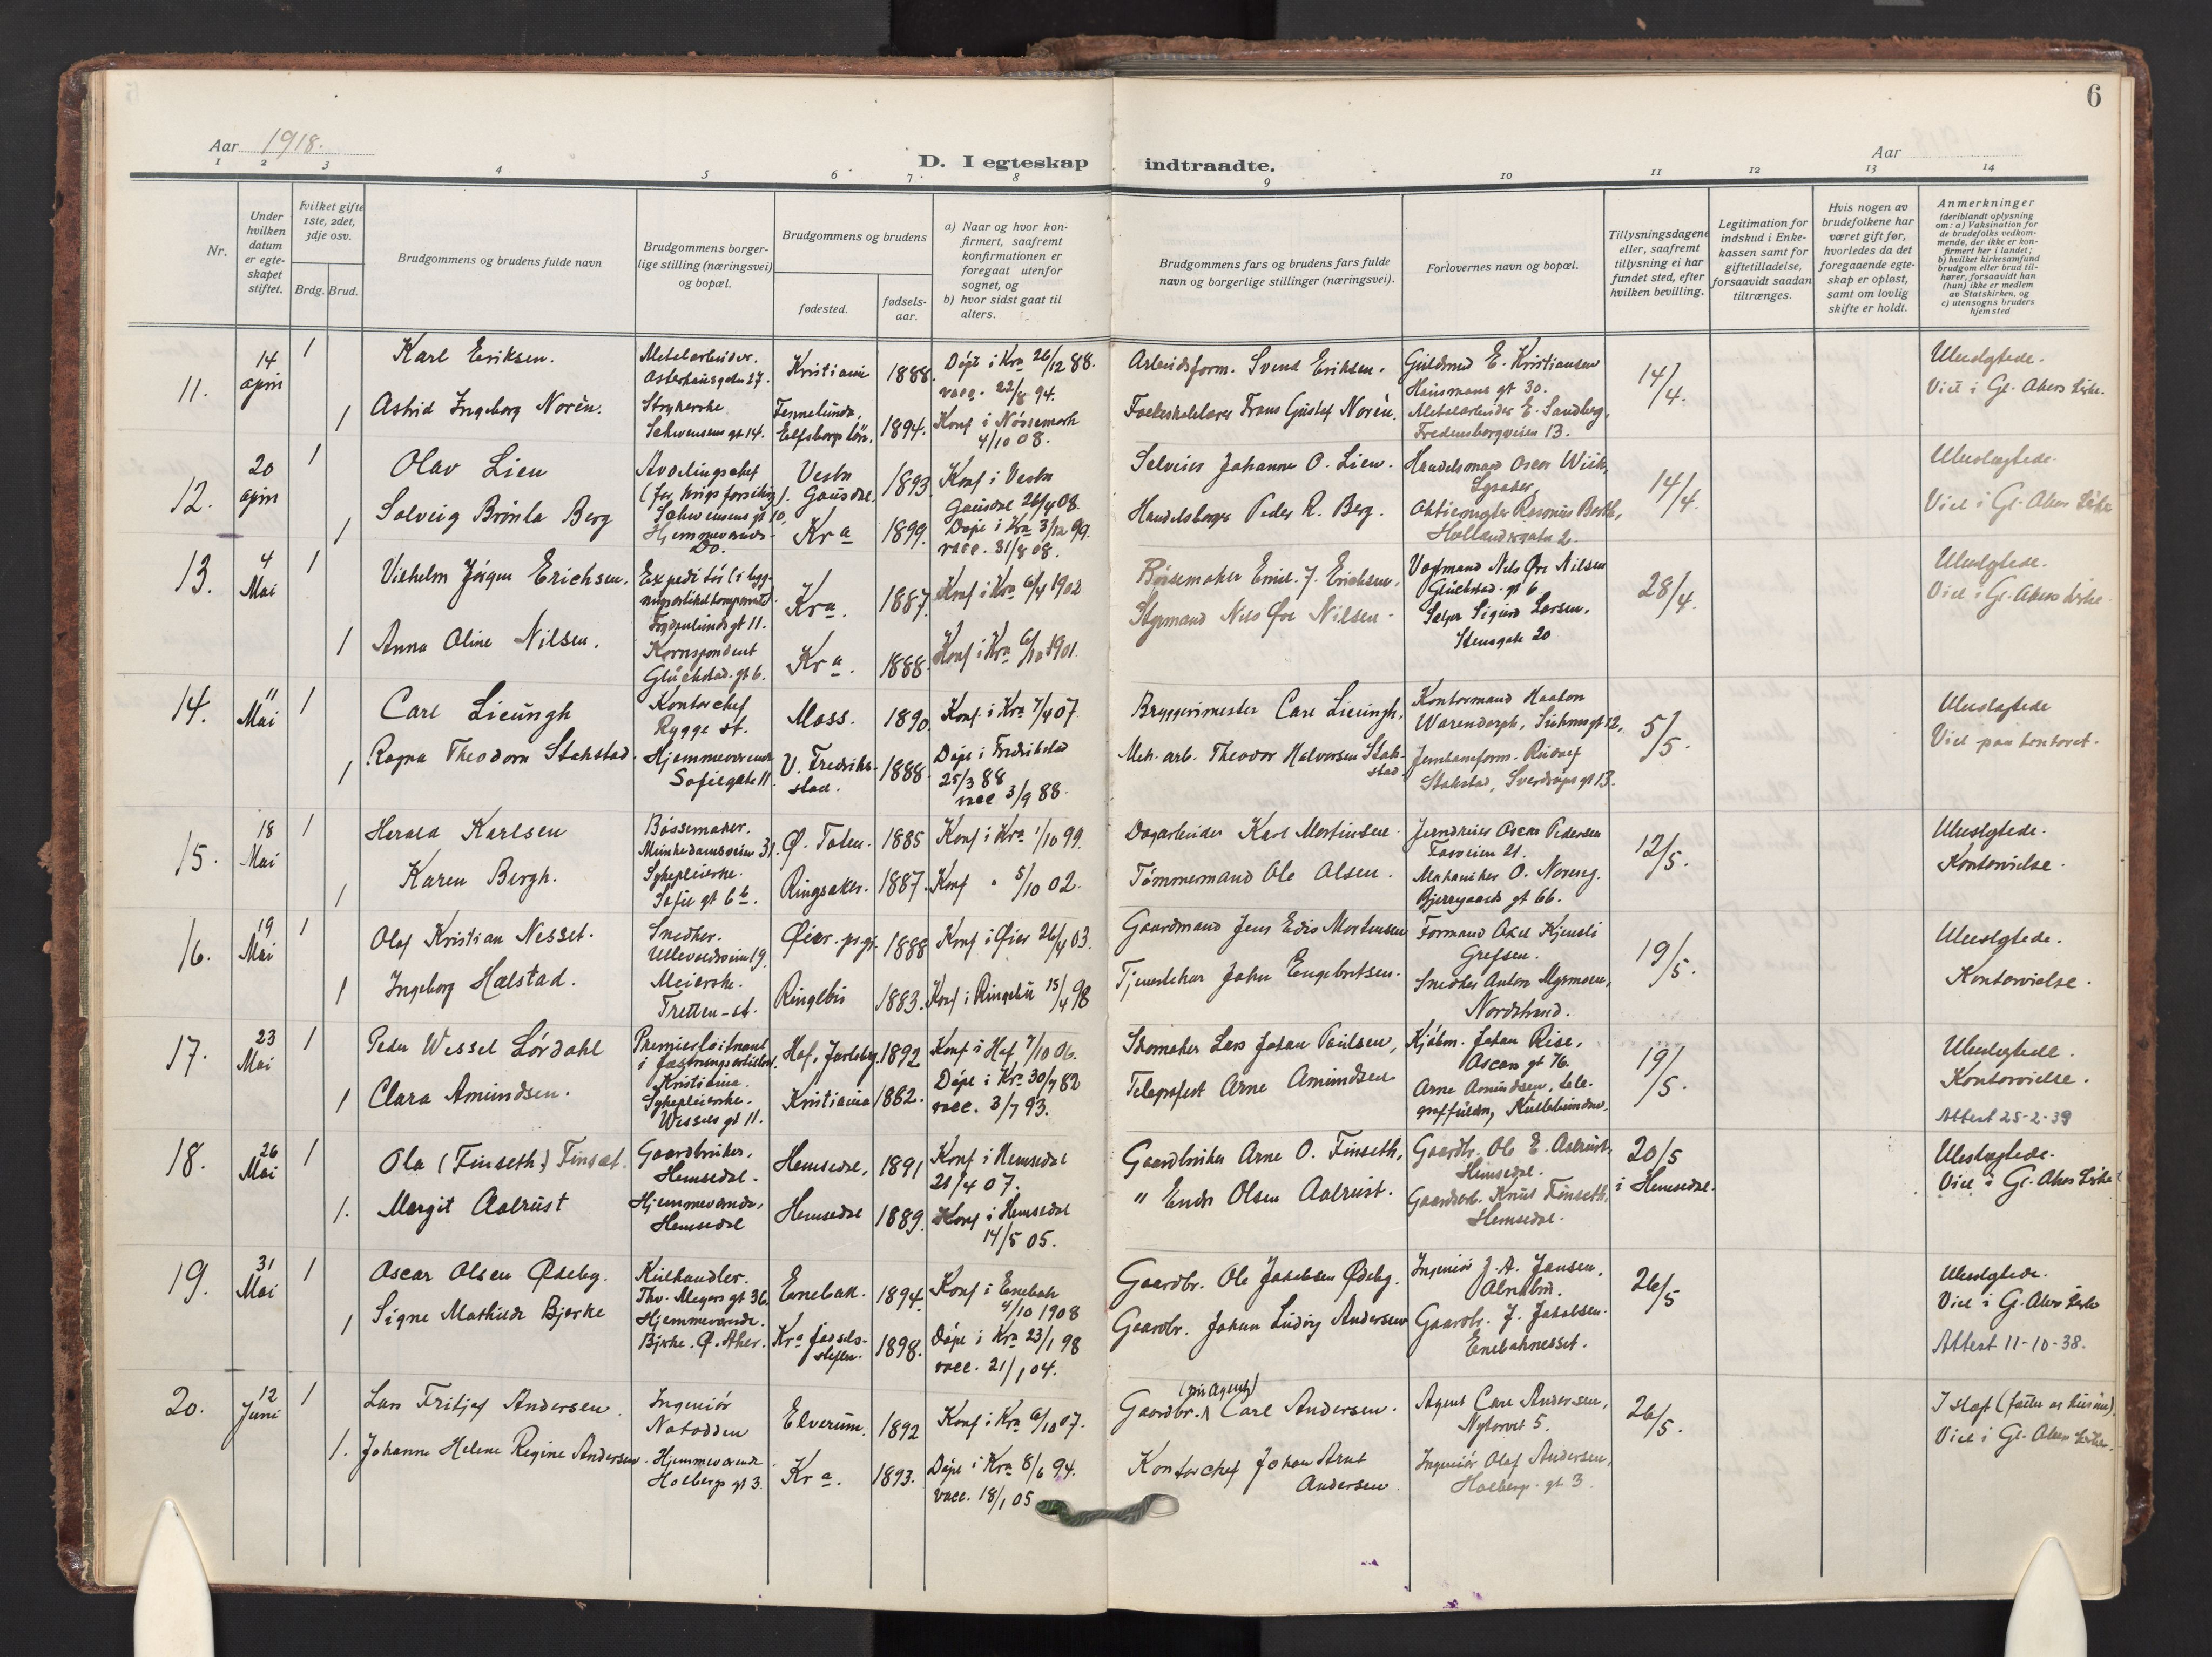 6
Aar 1918.
Aar
D. I egteskap indtraadte.
1 2 3 4 5 6 7 8 9 10 11 12 13 14
Nr.
Under hvilken datum er egteskapet stiftet.
Hvilket gifte 1ste, 2det, 3dje osv.
Brdg. Brud.
Brudgommens og brudens fulde navn
Brudgommens borgerlige stilling (næringsvei) og bopæl.
Brudgommens og brudens
fødested.
fødselsaar.
a) Naar og hvor konfirmert, saafremt konfirmationen er foregaat utenfor sognet, og
b) hvor sidst gaat til alters.
Brudgommens fars og brudens fars fulde navn og borgerlige stillinger (næringsvei).
Forlovernes navn og bopæl.
Tillysningsdagene eller, saafremt tillysning ei har fundet sted, efter hvilken bevilling.
Legitimation for indskud i Enkekassen samt for giftetilladelse, forsaavidt saadan tiltrænges.
Hvis nogen av brudefolkene har været gift før, hvorledes da det foregaaende egteskap er opløst, samt om lovlig skifte er holdt.
Anmerkninger
(deriblandt oplysning om: a) Vaksination for de brudefolks vedkommende, der ikke er konfirmert her i landet; b) hvilket kirkesamfund brudgom eller brud tilhører, forsaavidt han (hun) ikke er medlem av Statskirken, og c) utensogns bruders hjemsted
11. 14 april 1 Karl Eriksen. Metalarbeider. Osterhausgaten 27. Kristiania 1888. Døpt i Kra 26/12 88. vacc. 22/8 94. Arbeidsform. Svend Eriksen. Guldsmed E. Kristiansen Hausmans gt 30. 14/4. Ubeslegtede. Viet i Gl. Akers kirke.
1 Astrid Ingeborg Norèn. Strykerske Schwensens gt 14. Elfsborgs län. 1894. Konf i Nössemark 4/10 08. Frans Gustaf Norèn. Metalarbeider E. Sandberg, Fredensborgveien 13.
12. 20 april 1 Olav Lien Avdelingschef (for krigsforsikring). Schwensens gt 10, Vestre Gausdal. 1893. Konf i Vestre Gausdal 26/4 08. Selveier Johannes O. Lien. Handelsmand Oscar Wiik, Lysaker. 14/4. Ubeslegtede. Viet i Gl. Akers kirke
1 Solveig Brønla Berg Hjemmeværende Do. Kra 1899. Døpt i Kra 3/12 99. vacc. 31/8 08. Handelsborger Peder R. Berg. Hollandsgata 2.
13. 4 Mai 1 Vilhelm Jørgen Erichsen. Expeditør Frydenlunds gt 11. Kra. 1887. Konf i Kra 6/4 1902 Børsemaker Emil J. Erichsen. Vogtmand Nils Øre Nilsen Glückstad. gt 6 28/4. Ubeslegtede. Viet i Gl. Akers kirke.
1 Anna Oline Nilsen. Korrespondent Glückstad. gt 6. Kra. 1888. Konf i Kra 6/10 1901. Styrmand Nils Øre Nilsen. Sigurd Larsen. Stensgate 20
14. 11 Mai 1 Carl Lieungh Kontorchef Rygge st. Moss. 1890. Konf. i Kra 7/4 07. Bryggerimester Carl Lieungh. Kontormand Haakon Warendorph, Suhms gt 12. 5/5. Ubeslegtede Viet paa kontoret.
1 Ragna Theodora Stakstad. Hjemmeværende Sofiegate 11. V. Fredrikstad. 1888. Døpt i Fredrikstad 25/3 88 vacc 3/9 88. Mek. arb. Theodor Halvorsen Stakstad. Jernbaneform. Rudolf Stakstad, Sverdrups gt 13.
15. 18 Mai 1 Harald Karlsen Bøssemaker. Munkedamsveien 31. Ø. Toten. 1885 Konf i Kra 1/10 99. Dagarbeider Karl Mortinsen. Jerndreier Oscar Pedersen 21. 12/5. Ubeslegtede. Kontorvielse.
1 Karen Bergh. Sykepleierske. Sofie gt 6b. Ringsaker. 1887. Konf " 5/10 02. Tømmermand Ole Olsen. Mekaniker O. Noreng. Bjerregaards gt 66.
16. 19 Mai 1 Olaf Kristian Nesset. Snedker. Ullevoldsveien 19. Øier. prgj. 1888 Konf i Øier 26/4 03. Gaardmand Jens Edis Mortensen Formand Axel Kjensli Grefsen. 19/5. Ubeslegtede. Kontorvielse.
1 Ingeborg Halstad. Meierske. Tretten-st. Ringebu 1883. Konf i Ringebu 15/4 98 Johan Engebretsen. Snedker Anton Myrmoen, Nordstrand.
17. 23 Mai 1 Peder Wessel Lørdahl Premierløitnant i fæstningsartilleri. Kristiania. Hof, Jarlsberg. 1892 Konf i Hof 7/10 06. Skomaker Lars Johan Paulsen, Kjøbm. Johan Rise, Oscars gt 76. 19/5. Ubeslegtede. Kontorvielse.
1 Clara Amundsen. Sykepleierske. Wessels gt 11. Kristiania 1882. Døpt i Kra 30/7 82 vacc. 3/7 93. Telegrafest Arne Amundsen Arne Amundsen, Attest 25-2-39
18. 26 Mai 1 Ola (Finseth) Finset. Gaardbruker, Hemsedal. Hemsedal, 1891 Konf i Hemsedal 21/4 07. Gaardbruker Arne O. Finseth, Gaardbr. Ole E. Aalrust, Hemsedal. 20/5 i Hemsedal. Ubeslegtede. Viet i Gl. Akers kirke
1. Margit Aalrust Hjemmeværende, Hemsedal Hemsedal 1889. Konf i Hemsedal 14/5 05. " Endre Olsen Aalrust. Knut Finseth, Hemsedal.
19. 31 Mai 1 Oscar Olsen Ødeby. Kulhandler. Thv. Meyers gt 36. Enebak. 1894. Konf i Enebak 4/10 1908 Gaardbr. Ole Jakobsen Ødeby. Ingeniør J. A. Jansen, 26/5 Ubeslegtede. Viet i Gl. Akers kirke
1 Signe Mathilde Bjerke Hjemmeværende. Bjerke. Ø. Aker. Kra fødselsstiften. 1898. Døpt i Kra 23/1 98 vacc. 21/1 04. Gaardbr. Johan Ludvig Andersen Gaardbr. J. Jakobsen. Enebaknesset. Attest 11-10-38.
20. 12 Juni 1 Lars Fritjof Andersen. Ingeniør Notodden Elverum. 1892 Konf i Kra 6/10 07. Gaardbr. (nu Agent) Carl Andersen. Agent Carl Andersen, Nytorvet 5. 26/5. I slegt Viet i Gl. Akers kirke.
1. Johanne Helene Regine Andersen. Hjemmeværende Holbergs gt 3. Kra. 1893. Døpt i Kra 8/6 94. vacc. 18/1 05 Kontorchef Johan Arnt Andersen. Ingeniør Olaf Andersen, Holbergs gt 3.